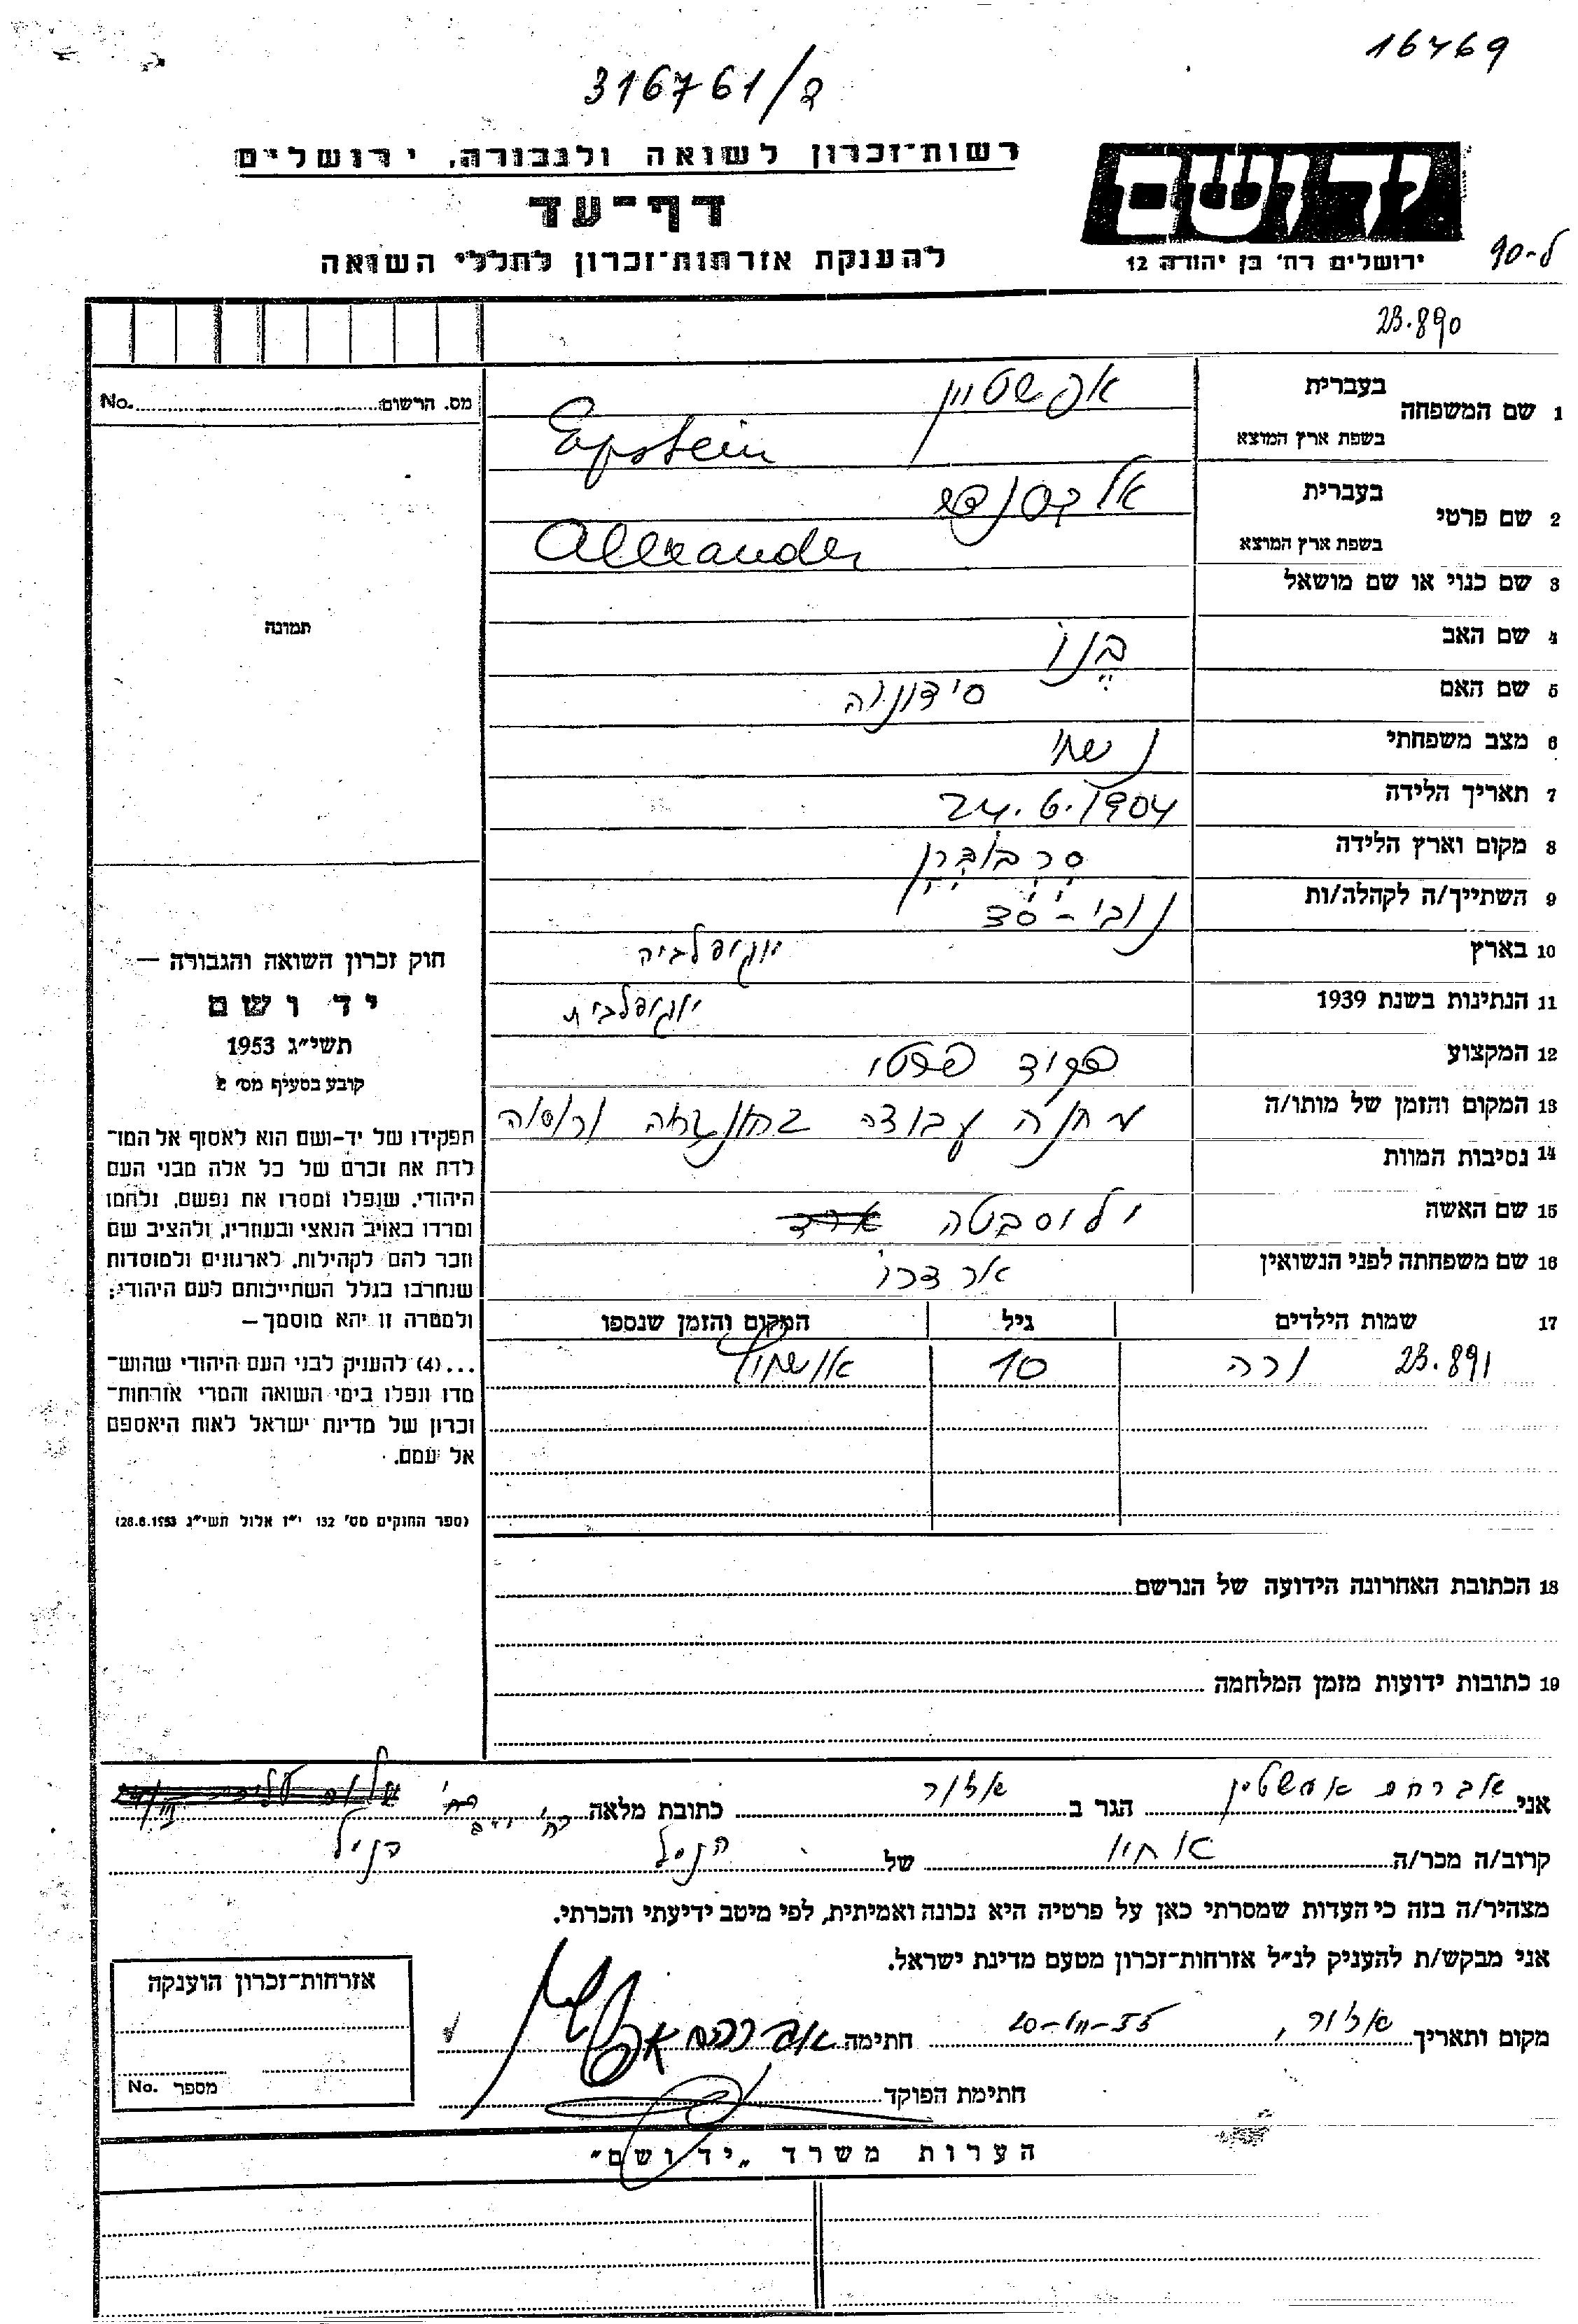 16769
316761/ד
רשות־זכרון לשואה ולגבורה, ירושלים
ידושם
דף־עד
להענקת אזרחות־זכרון לחללי השואה
ירושלים רח׳ בן יהודה 12
ל-90
23.890
מס. הרשום No.
1 שם המשפחה בעברית אפשטיין
בשפת ארץ המוצא Epstein
2 שם פרטי בעברית אלכסנדר
בשפת ארץ המוצא Alexander
3 שם כנוי או שם מושאל
תמונה
4 שם האב בנו
5 שם האם סידוניה
6 מצב משפחתי נשוי
7 תאריך הלידה 24.6.1904
8 מקום וארץ הלידה
9 השתייך/ה לקהלה/ות נובי-סד
10 בארץ יוגוסלביה
11 הנתינות בשנת 1939 יוגוסלבית
12 המקצוע פקיד פרטי
13 המקום והזמן של מותו/ה מחנה עבודה בהונגריה
14 נסיבות המוות
15 שם האשה
16 שם משפחתה לפני הנשואין
17 שמות הילדים גיל המקום והזמן שנספו
23.891 ורה 10 אושוויץ
חוק זכרון השואה והגבורה —
יד ושם
תשי״ג 1953
קובע בסעיף מס׳ 2
תפקידו של יד-ושם הוא לאסוף אל המו־
לדת את זכרם של כל אלה מבני העם
היהודי, שנפלו ומסרו את נפשם, נלחמו
ומרדו באויב הנאצי ובעוזריו, ולהציב שם
וזכר להם לקהילות, לארגונים ולמוסדות
שנחרבו בגלל השתייכותם לעם היהודי;
ולמטרה זו יהא מוסמך —
...(4) להעניק לבני העם היהודי שהוש־
מדו ונפלו בימי השואה והמרי אזרחות־
זכרון של מדינת ישראל לאות היאספם
אל עמם.
(ספר החוקים מס׳ 132 י״ז אלול תשי״ג 28.8.1953)
18 הכתובת האחרונה הידועה של הנרשם
19 כתובות ידועות מזמן המלחמה
אני אברהם אפשטין הגר ב אזור כתובת מלאה רח׳
קרוב/ה מכר/ה אחיו של הנ״ל
מצהיר/ה בזה כי העדות שמסרתי כאן על פרטיה היא נכונה ואמיתית, לפי מיטב ידיעתי והכרתי.
אני מבקש/ת להעניק לנ״ל אזרחות־זכרון מטעם מדינת ישראל.
מקום ותאריך אזור, חתימה
חתימת הפוקד
אזרחות־זכרון הוענקה
מספר No.
הערות משרד „יד ושם״